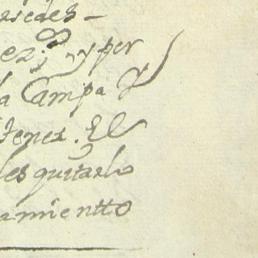 sedes-
ez; y per
la Campa q
fener. El
les quitarlo
amientto